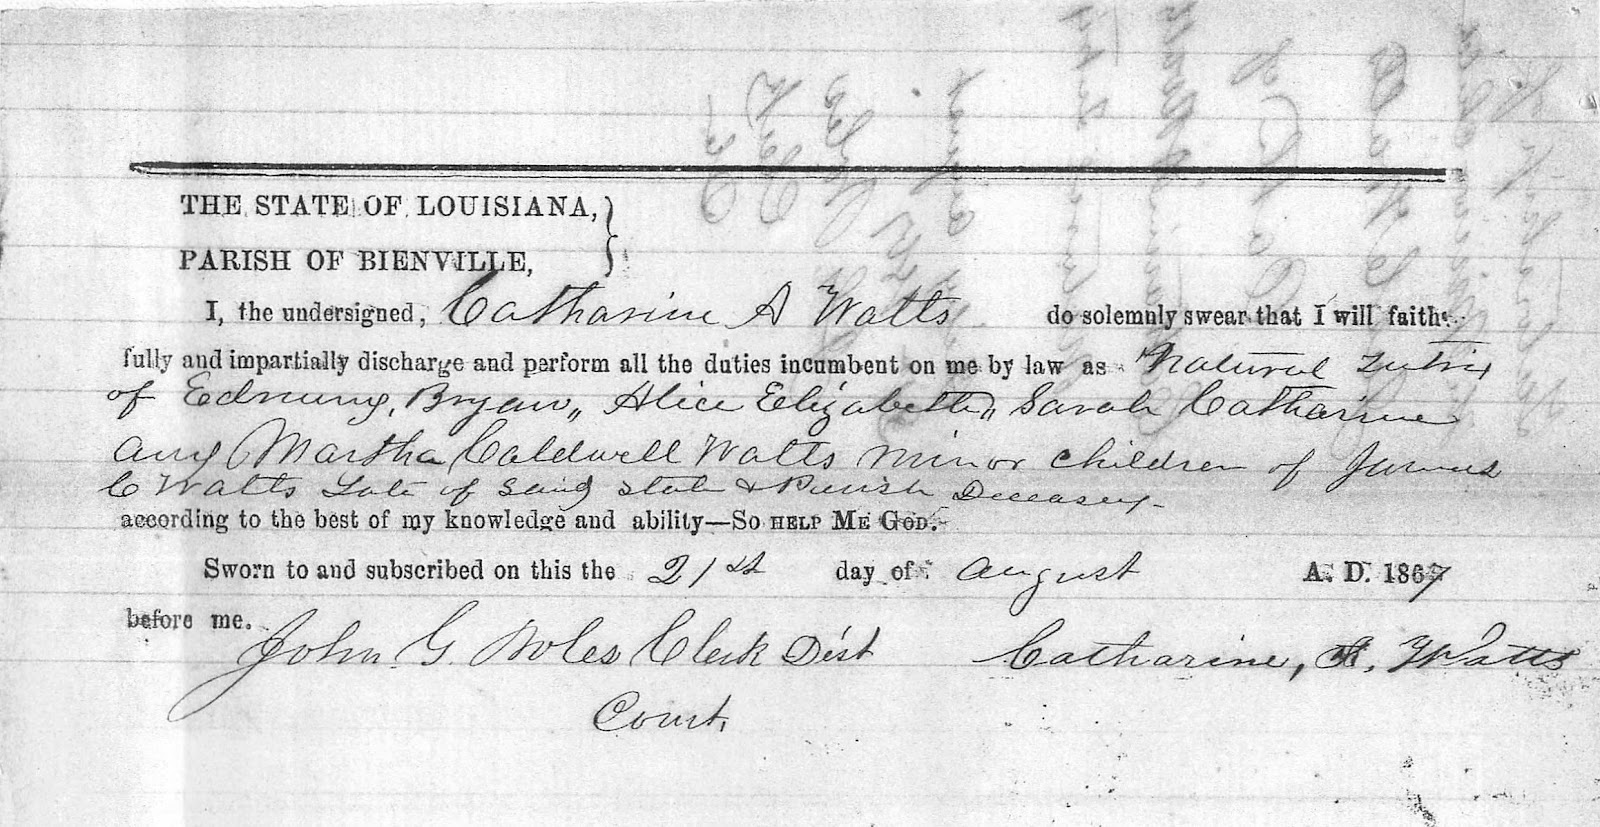 THE STATE OF LOUISIANA,
PARISH OF BIENVILLE,
I, the undersigned, Catharine A Watts do solemnly swear that I will faith-
fully and impartially discharge and perform all the duties incumbent on me by law as Natural Tutrix
of Edmund, Bryan, Alice Elizabeth, Sarah Catharine
and Martha Caldwell Watts minor children of James
C Watts Late of said State & Parish Deceased.
according to the best of my knowledge and ability—SO HELP ME GOD.
Sworn to and subscribed on this the 21st day of August A. D. 1867
before me.
John G. Boles Clerk Dist Catharine, A. Watts
Court.